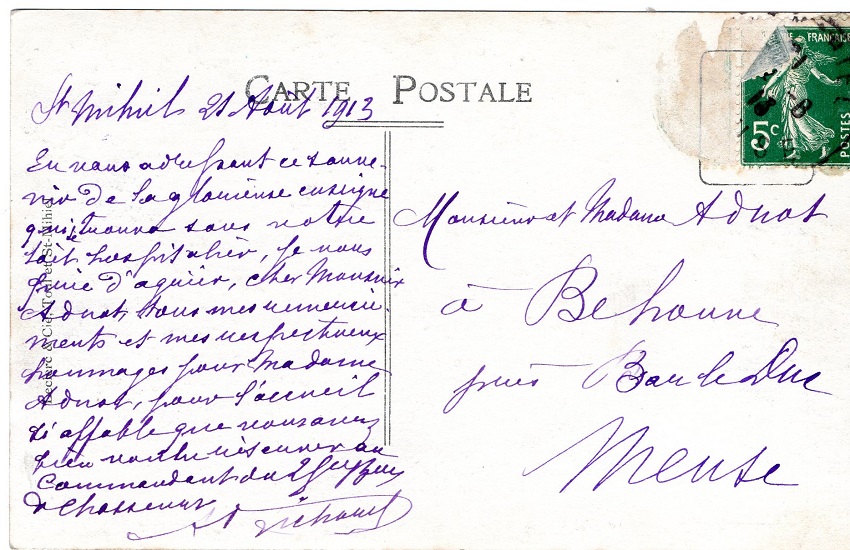 CARTE POSTALE
St Mihiel 21 Août 1913
En vous adressant ce souve-
nir de la glorieuse enseigne
qui se trouva sous votre
toit hospitalier, je vous
prie d'agréer, cher Monsieur
Adnot, tous mes remercie-
ments et mes respectueux
hommages pour Madame
Adnot, pour l'accueil
si affable que vous avez
bien voulu réserver au
Commandant du
de Chasseurs
Leclerc & Cie, Toul et St-Mihiel
FRANÇAISE
POSTES
5c
Monsieur et Madame Adnot
à Behonne
près Bar le Duc
Meuse